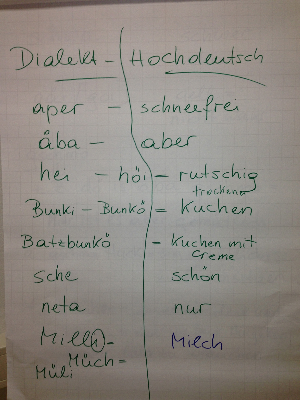 Dialekt - Hochdeutsch
aper - schneefrei
åba - aber
hei - höi - rutschig
trockener
Bunki - Bunkö = Kuchen
Batzbunkö - Kuchen mit
Creme
sche schön
neta nur
Milli - Milch
Müch =
Müli